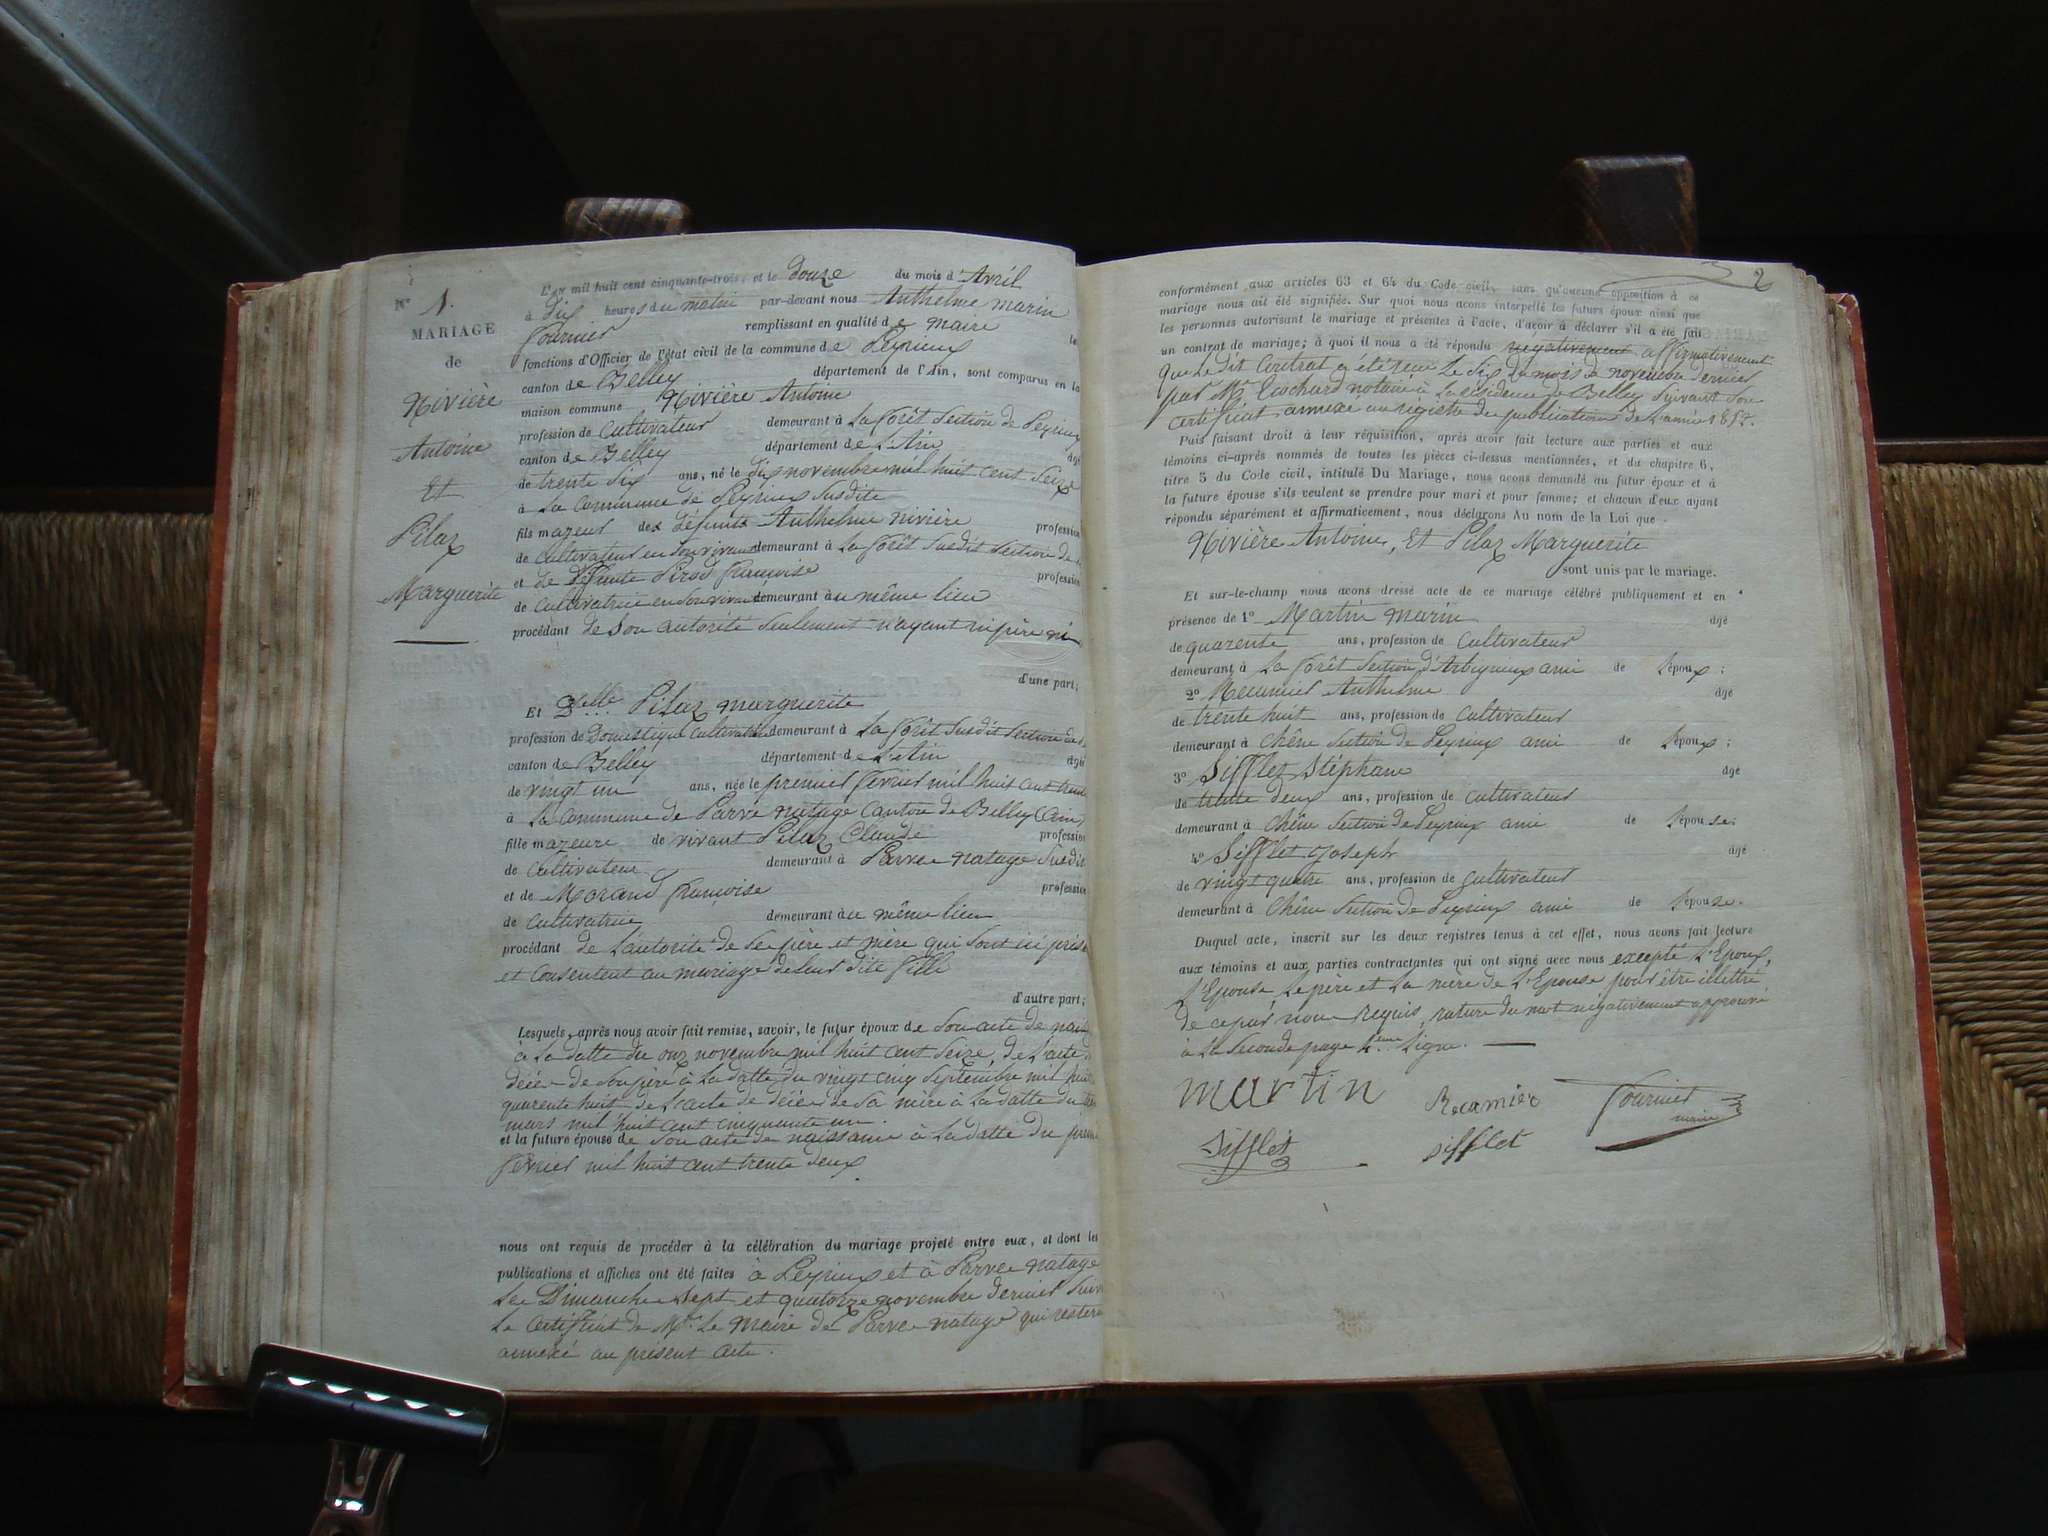 N° 1.
MARIAGE
de
Nivière
Antoine
Et
Pilaz
Marguerite
L'an mil huit cent cinquante-trois, et le Douze du mois d'Avril
à Dix heures du matin par-devant nous Anthelme marin
Fournier remplissant en qualité de maire le
fonctions d'Officier de l'état civil de la commune de Peyrieux
canton de Belley département de l'Ain, sont comparus en la
maison commune Nivière Antoine
profession de Cultivateur demeurant à La forêt Section de Peyrieux
canton de Belley département de L'Ain âgé
de trente Six ans, né le dix novembre mil huit cent Seize
à La Commune de Peyrieux Susdite
fils majeur de Défunt Anthelme nivière profession
de Cultivateur en Son vivant demeurant à La forêt Susdit Section de
et de Défunte françoise profession
de Cultivatrice en Son vivant demeurant au même lieu
procédant de Son autorité Seulement n'ayant ni père ni
d'une part;
Et Delle Pilaz marguerite
profession de Domestique Cultivatrice demeurant à La forêt Susdit Section de
canton de Belley département de L'Ain âgé
de vingt un ans, née le premier février mil huit cent trente
à La Commune de Parve natage Canton de Belley (Ain)
fille majeure de vivant Pilaz Claude profession
de Cultivateur demeurant à Parve natage Susdit
et de Morand françoise profession
de Cultivatrice demeurant au même lieu
procédant de L'autorité de Ses père et mère qui Sont ici prés
et Consentent au mariage de leur dite fille
d'autre part;
Lesquels, après nous avoir fait remise, savoir, le futur époux de Son acte de nais
à La datte du onze novembre mil huit cent Seize, de L'acte d
décès de Son père à La datte du vingt cinq Septembre mil huit
quarente huit de L'acte de décès de Sa mère à La datte du
mars mil huit cent cinquante un.
et la future épouse de Son acte de naissance à La datte du prem
février mil huit cent trente deux
nous ont requis de procéder à la célébration du mariage projeté entre eux, et dont les
publications et affiches ont été faites à Peyrieux et à Parve natage
Les Dimanches Sept et quatorze novembre Dernier Suiv
Le Certificat de Mr Le Maire de Parve natage qui restera
annexé au présent acte.
2
conformément aux articles 63 et 64 du Code civil, sans qu'aucune opposition à ce
mariage nous ait été signifiée. Sur quoi nous avons interpellé les futurs époux ainsi que
les personnes autorisant le mariage et présentes à l'acte, d'avoir à déclarer s'il a été fait
un contrat de mariage; à quoi il nous a été répondu négativement affirmativement
que Le dit Contrat a été reçu Le Six du mois de novembre dernier
par Me notaire à La résidence de Belley Suivant Son
certificat annexé au registre des publications de L'année 1852.
Puis faisant droit à leur réquisition, après avoir fait lecture aux parties et aux
témoins ci-après nommés de toutes les pièces ci-dessus mentionnées, et du chapitre 6,
titre 5 du Code civil, intitulé Du Mariage, nous avons demandé au futur époux et à
la future épouse s'ils veulent se prendre pour mari et pour femme; et chacun d'eux ayant
répondu séparément et affirmativement, nous déclarons Au nom de la Loi que
Nivière Antoine, Et Pilaz Marguerite
sont unis par le mariage.
Et sur-le-champ nous avons dressé acte de ce mariage célébré publiquement et en
présence de 1° Martin marin âgé
de quarente ans, profession de Cultivateur
demeurant à La forêt Section d'Arbignieux ami de l'époux;
2° Récamier Anthelme âgé
de trente huit ans, profession de Cultivateur
demeurant à Chêne Section de Peyrieux ami de l'époux;
3° Sifflet Stéphane âgé
de trente deux ans, profession de Cultivateur
demeurant à Chêne Section de Peyrieux ami de l'épouse;
4° Sifflet Joseph âgé
de vingt quatre ans, profession de Cultivateur
demeurant à Chêne Section de Peyrieux ami de l'épouse.
Duquel acte, inscrit sur les deux registres tenus à cet effet, nous avons fait lecture
aux témoins et aux parties contractantes qui ont signé avec nous excepté L'Epoux,
L'Epouse Le père et La mère de L'Epouse pour être illettré
de ce par nous Requis, rature du mot négativement approuvé
à La Seconde page 4eme Ligne.
martin
Recamier
Fournier
maire
Sifflet
Sifflet